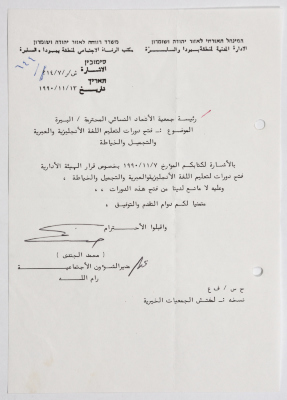 המינהל האזרחי לאזור יהודה ושומרון
משרד רווחה לאזור יהודה ושומרון
الادارة المدنية لمنطقة يهودا والسامرة
مكتب الرفاه الاجتماعي لمنطقة يهودا والسامرة
סימוכין
الاشارة ش/١٤/٧/
תאריך
تاريخ ١٩٩٠/١١/١٣
رئيسة جمعية الاتحاد النسائي المحترمة / البيرة
الموضوع :- فتح دورات لتعليم اللغة الأنجليزية والعبرية
والتجميل والخياطة
بالأشارة لكتابكم المؤرخ ١٩٩٠/١١/٧ بخصوص قرار الهيئة الأدارية
فتح دورات لتعليم اللغة الأنجليزيةوالعبرية والتجميل والخياطة ،
وعليه لا مانع لدينا من فتح هذه الدورات ، ،
متمنيا لكم دوام التقدم والتوفيق ،
واقبلوا الاحترام
( محمد الجندي )
مدير الشؤون الأجتماعية
رام الله
ح س / ف ع
نسخه :- لمفتش الجمعيات الخيرية